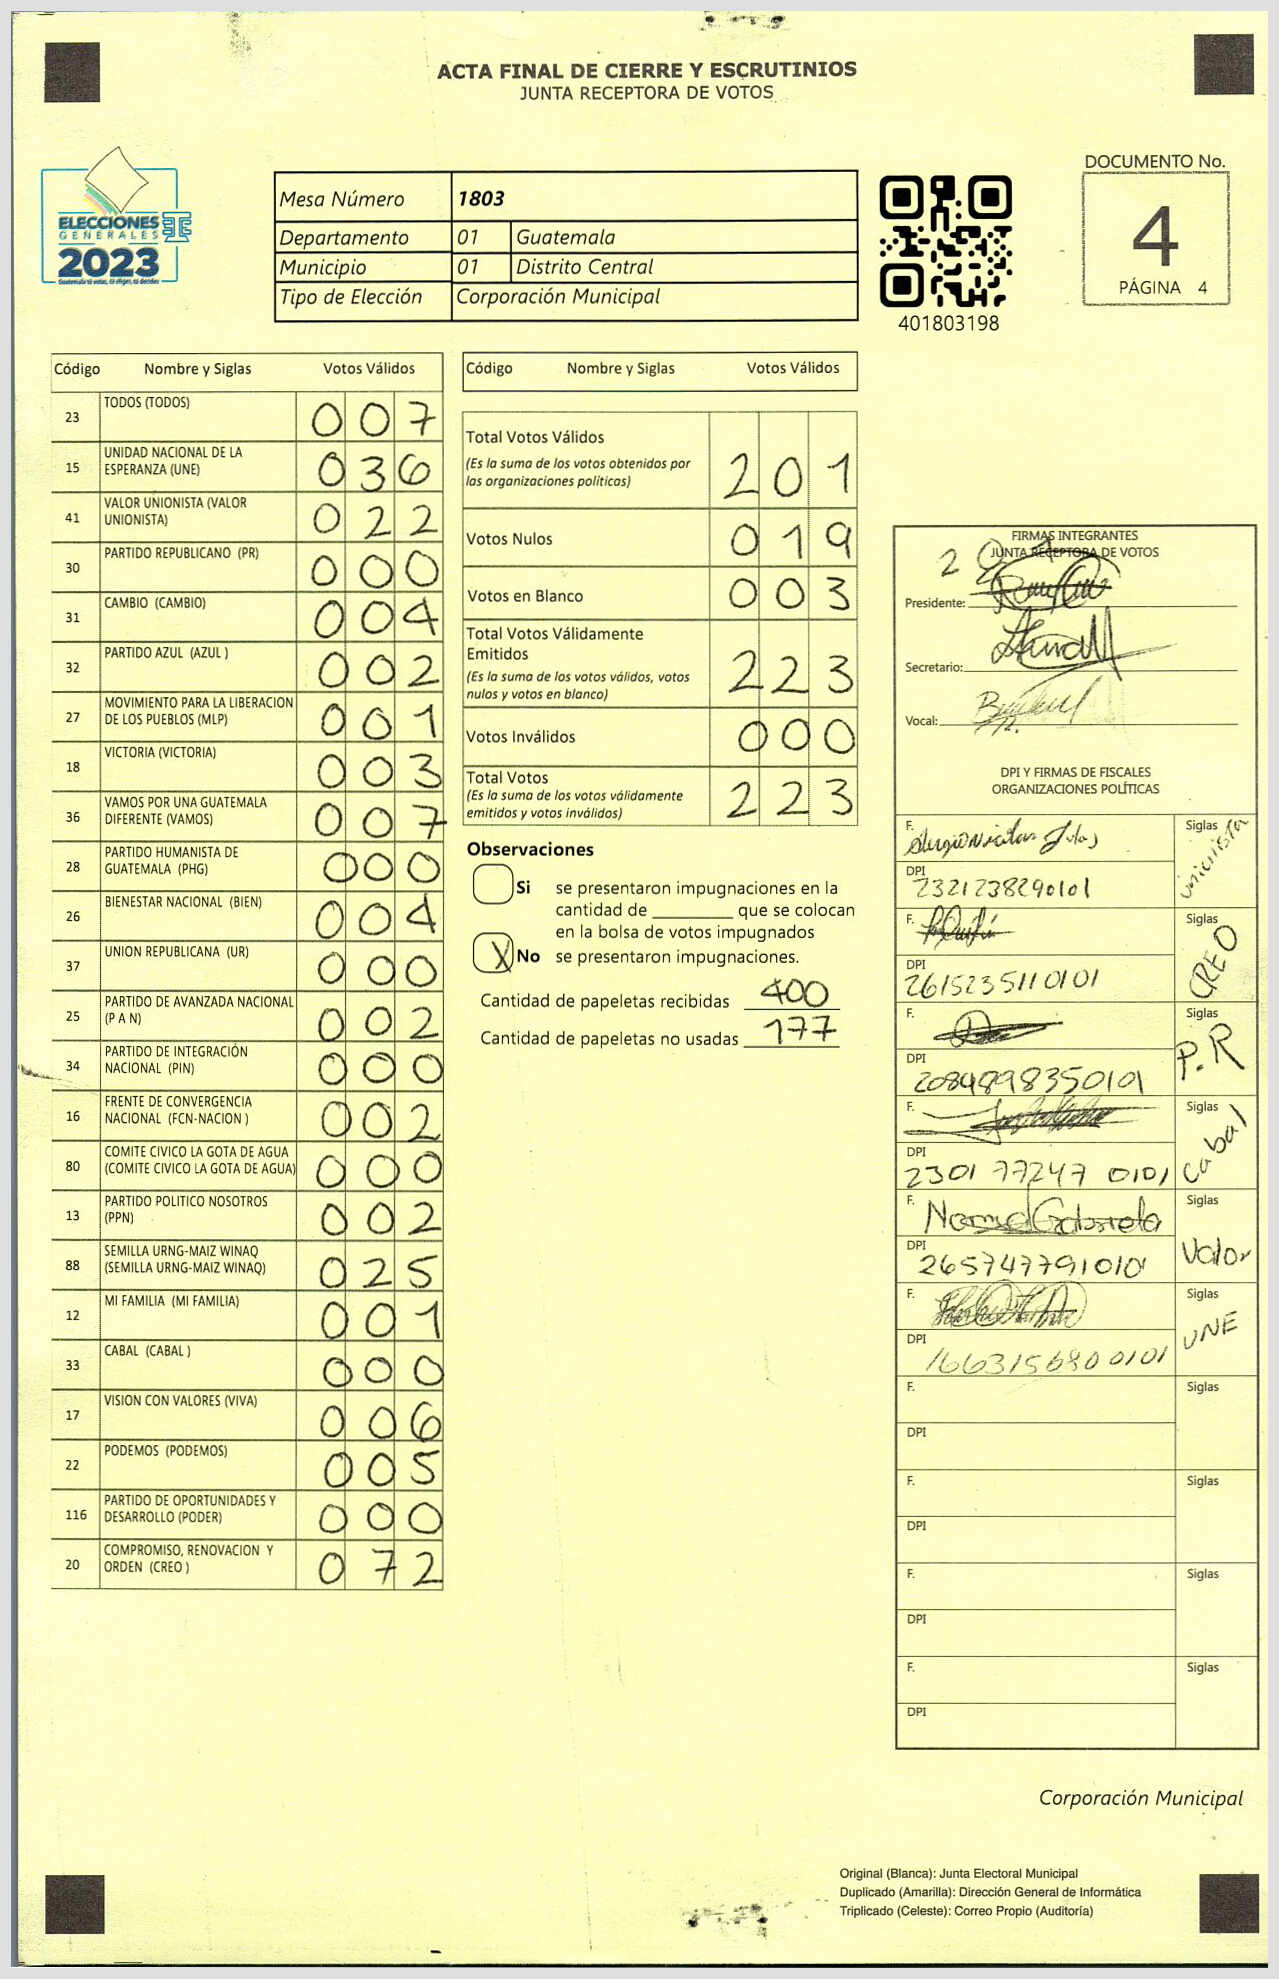 ACTA FINAL DE CIERRE Y ESCRUTINIOS
JUNTA RECEPTORA DE VOTOS
ELECCIONES
GENERALES
2023
Mesa Número 1803
Departamento 01 Guatemala
Municipio 01 Distrito Central
Tipo de Elección Corporación Municipal
401803198
DOCUMENTO No.
4
PÁGINA 4
Código Nombre y Siglas Votos Válidos
23 TODOS (TODOS) 007
15 UNIDAD NACIONAL DE LA
ESPERANZA (UNE) 036
41 VALOR UNIONISTA (VALOR
UNIONISTA) 022
30 PARTIDO REPUBLICANO (PR) 000
31 CAMBIO (CAMBIO) 004
32 PARTIDO AZUL (AZUL ) 002
27 MOVIMIENTO PARA LA LIBERACION
DE LOS PUEBLOS (MLP) 001
18 VICTORIA (VICTORIA) 003
36 VAMOS POR UNA GUATEMALA
DIFERENTE (VAMOS) 007
28 PARTIDO HUMANISTA DE
GUATEMALA (PHG) 000
26 BIENESTAR NACIONAL (BIEN) 004
37 UNION REPUBLICANA (UR) 000
25 PARTIDO DE AVANZADA NACIONAL
(P A N) 002
34 PARTIDO DE INTEGRACIÓN
NACIONAL (PIN) 000
16 FRENTE DE CONVERGENCIA
NACIONAL (FCN-NACION ) 002
80 COMITE CIVICO LA GOTA DE AGUA
(COMITE CIVICO LA GOTA DE AGUA) 000
13 PARTIDO POLITICO NOSOTROS
(PPN) 002
88 SEMILLA URNG-MAIZ WINAQ
(SEMILLA URNG-MAIZ WINAQ) 025
12 MI FAMILIA (MI FAMILIA) 001
33 CABAL (CABAL ) 000
17 VISION CON VALORES (VIVA) 006
22 PODEMOS (PODEMOS) 005
116 PARTIDO DE OPORTUNIDADES Y
DESARROLLO (PODER) 000
20 COMPROMISO, RENOVACION Y
ORDEN (CREO ) 072
Código Nombre y Siglas Votos Válidos
Total Votos Válidos
(Es la suma de los votos obtenidos por
las organizaciones políticas) 201
Votos Nulos 019
Votos en Blanco 003
Total Votos Válidamente
Emitidos
(Es la suma de los votos válidos, votos
nulos y votos en blanco) 223
Votos Inválidos 000
Total Votos
(Es la suma de los votos válidamente
emitidos y votos inválidos) 223
Observaciones
Si se presentaron impugnaciones en la
cantidad de ________ que se colocan
en la bolsa de votos impugnados
X No se presentaron impugnaciones.
Cantidad de papeletas recibidas 400
Cantidad de papeletas no usadas 177
FIRMAS INTEGRANTES
JUNTA RECEPTORA DE VOTOS
Presidente:
Secretario:
Vocal:
DPI Y FIRMAS DE FISCALES
ORGANIZACIONES POLÍTICAS
F. Siglas
unionista
DPI
2321238290101
F. Siglas
CREO
DPI
2615235110101
F. Siglas
P.R
DPI
2084898350101
F. Siglas
Cabal
DPI
2301 77247 0101
F. Siglas
Valor
DPI
2657477910101
F. Siglas
UNE
DPI
1663156800101
F. Siglas
DPI
F. Siglas
DPI
F. Siglas
DPI
F. Siglas
DPI
Corporación Municipal
Original (Blanca): Junta Electoral Municipal
Duplicado (Amarilla): Dirección General de Informática
Triplicado (Celeste): Correo Propio (Auditoría)